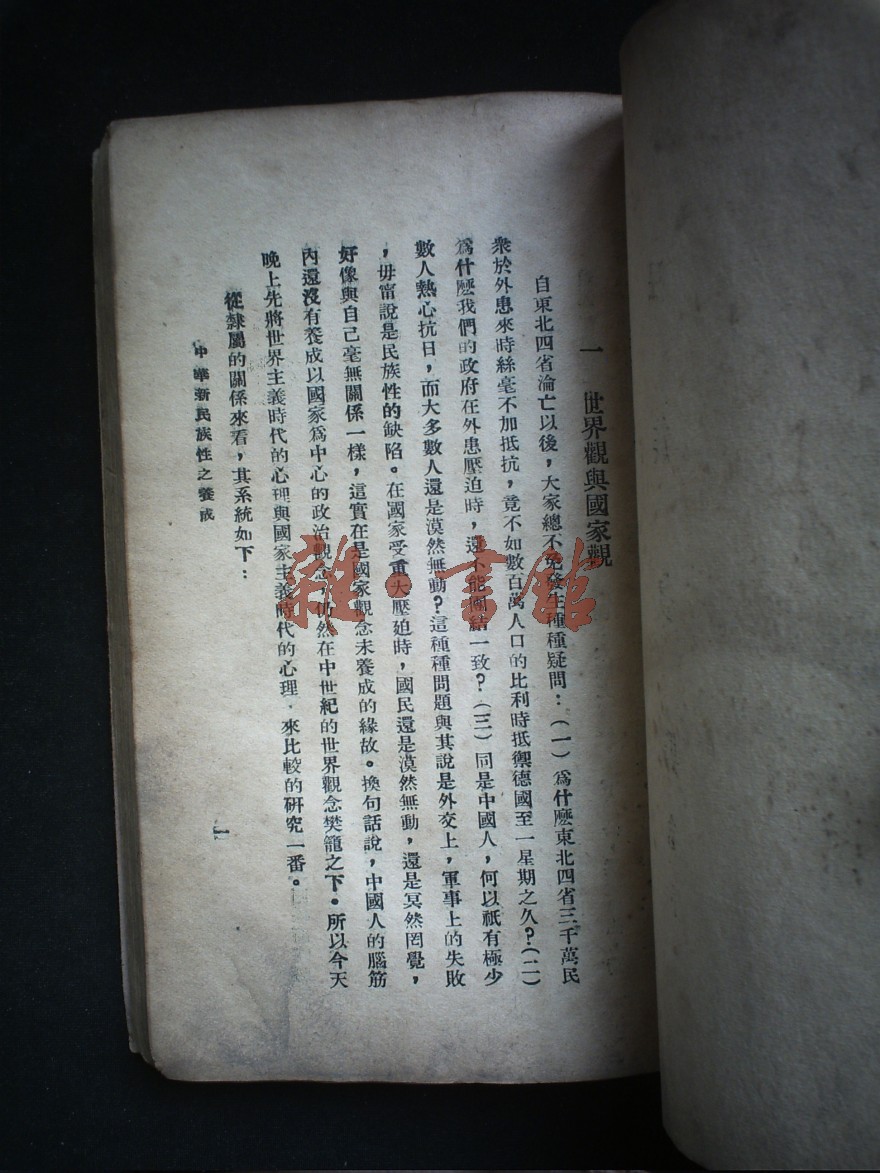 一　世界觀與國家觀
自東北四省淪亡以後，大家總不免發生種種疑問：（一）爲什麽東北四省三千萬民
衆於外患來時絲毫不加抵抗，竟不如數百萬人口的比利時抵禦德國至一星期之久？（二）
爲什麽我們的政府在外患壓迫時，還不能團結一致？（三）同是中國人，何以祇有極少
數人熱心抗日，而大多數人還是漠然無動？這種種問題與其說是外交上，軍事上的失敗
，毋甯說是民族性的缺陷。在國家受重大壓迫時，國民還是漠然無動，還是冥然罔覺，
好像與自己毫無關係一樣，這實在是國家觀念未養成的緣故。換句話說，中國人的腦筋
內還沒有養成以國家爲中心的政治觀念，仍然在中世紀的世界觀念樊籠之下。所以今天
晚上先將世界主義時代的心理與國家主義時代的心理，來比較的研究一番。
從隸屬的關係來看，其系統如下：
中華新民族性之養成
一
雜·書館